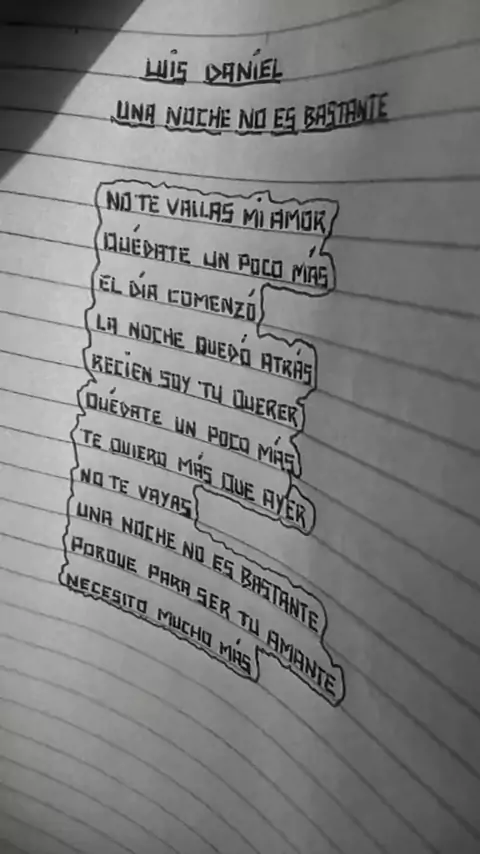 LUIS DANÍEL
UNA NOCHE NO ES BASTANTE
NO TE VALLAS MI AMOR
QUÉDATE UN POCO MÁS
EL DÍA COMENZÓ
LA NOCHE QUEDÓ ATRÁS
RECIEN SOY TU QUERER
QUÉDATE UN POCO MÁS
TE QUIERO MÁS QUE AYER
NO TE VAYAS
UNA NOCHE NO ES BASTANTE
PORQUE PARA SER TU AMANTE
NECESITO MUCHO MÁS